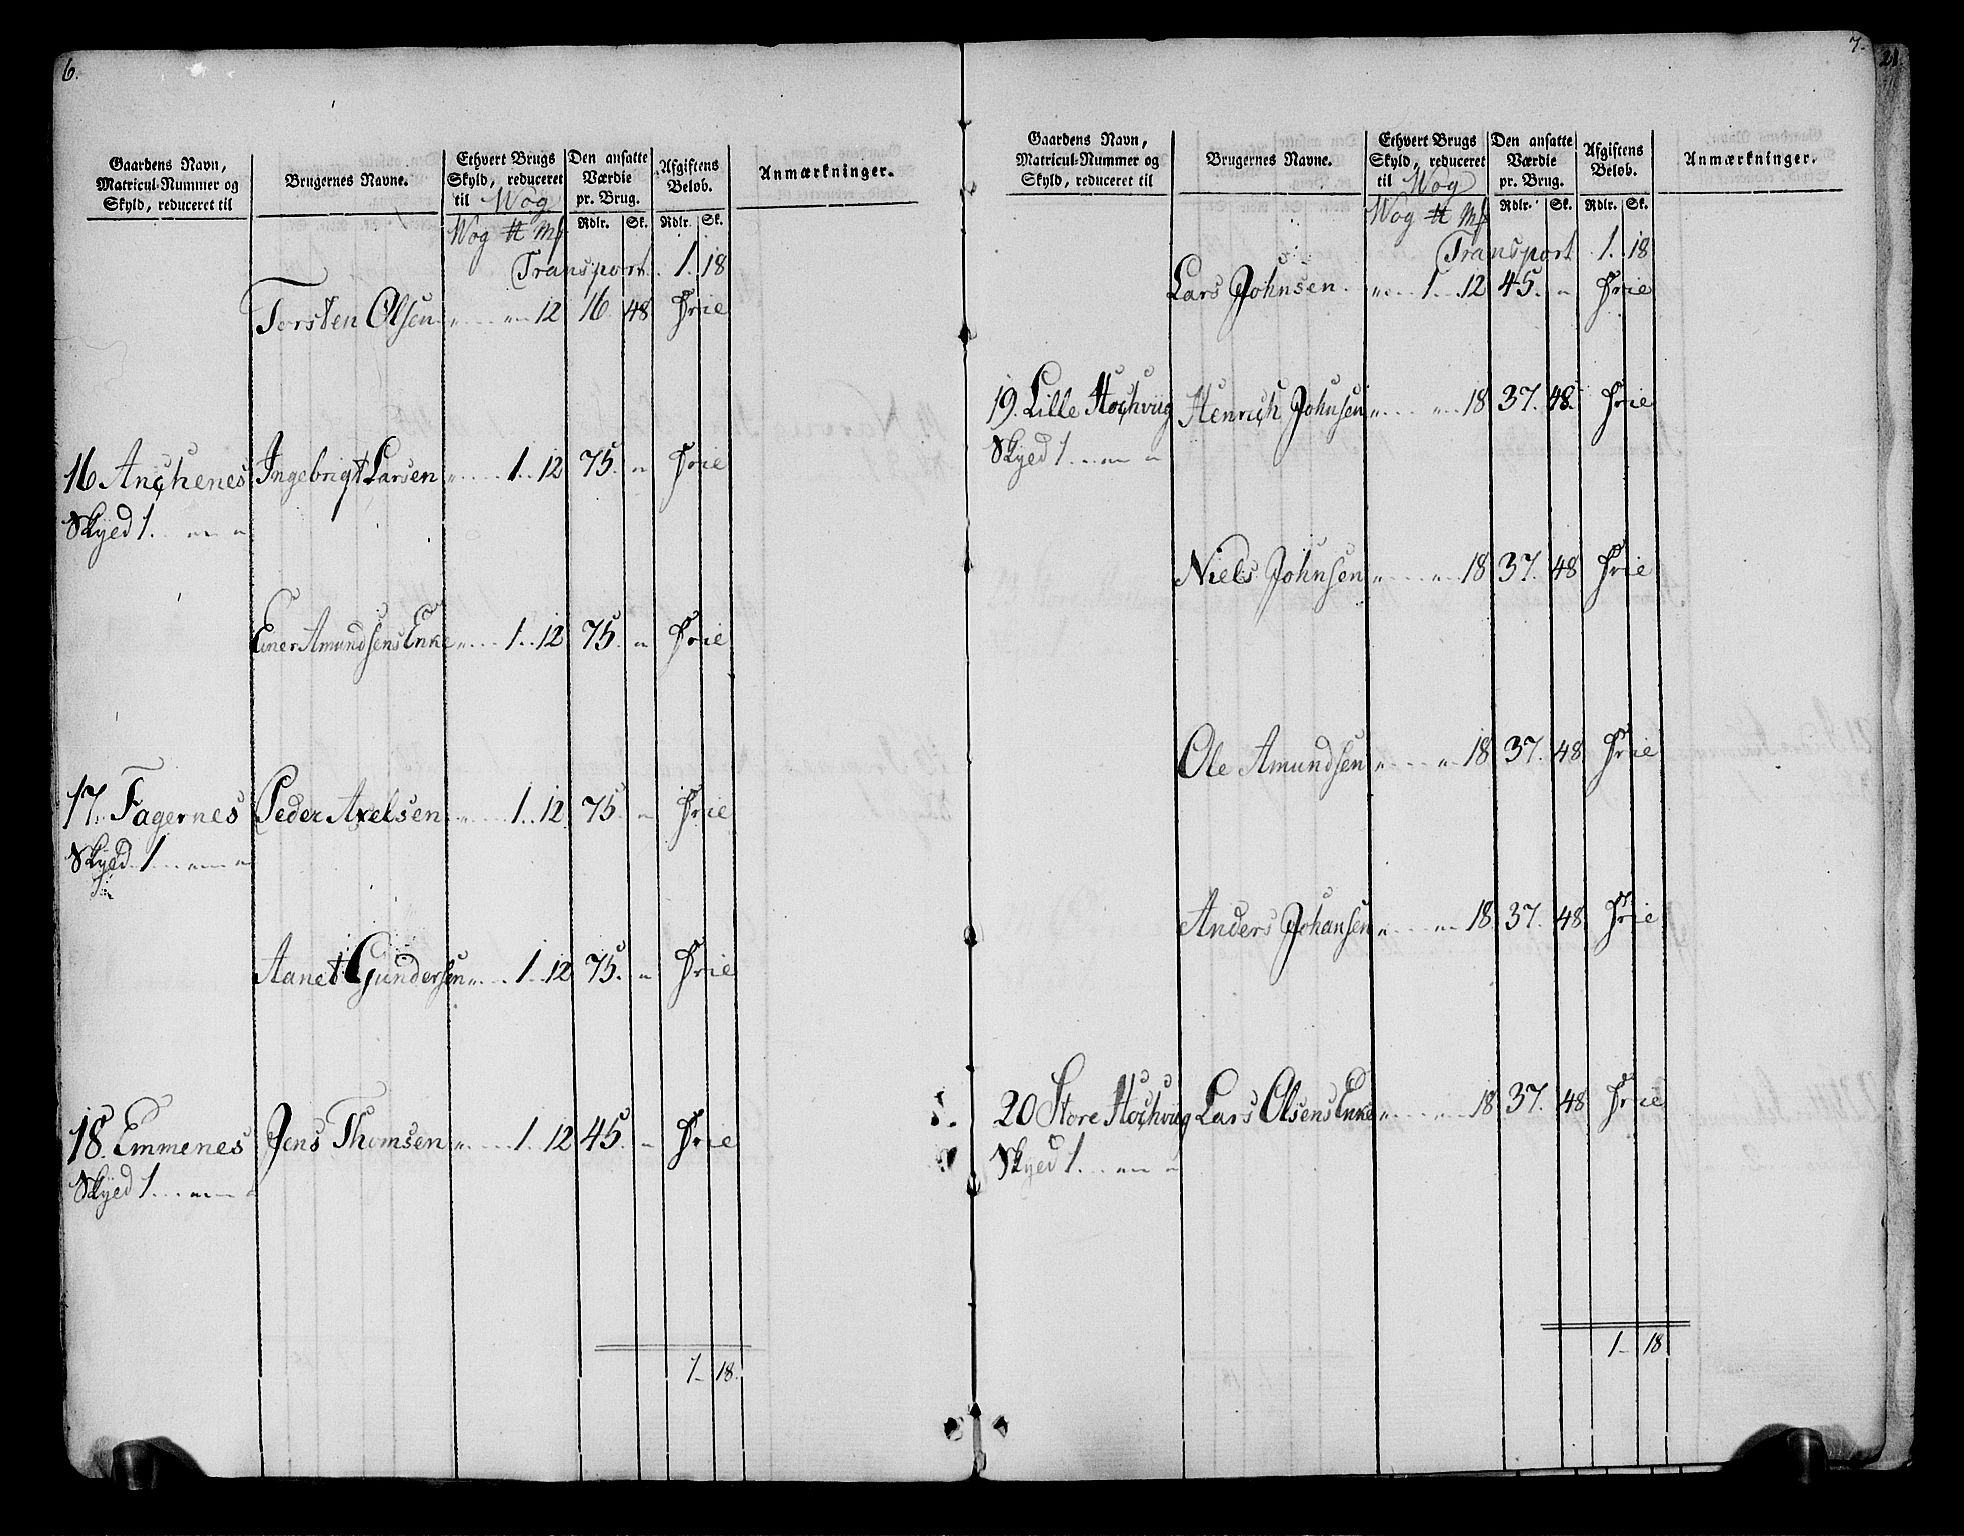 6.
Gaardens Navn, Matricul-Nummer og Skyld, reduceret til
Brugernes Navne.
Ethvert Brugs Skyld, reduceret til Wog
Den ansatte Værdie pr. Brug.
Afgiftens Beløb.
Anmærkninger.
Wog ℔ Mk
Rdlr. Sk. Rdlr. Sk.
Transport. 1. 18
Torsten Olsen „ „ 12 16 48 Frie
16 Anchenes Ingebrigt Larsen „ 1. 12 75. „ Frie
Skyed 1. „ „
Einer Amundsens Enke „ 1. 12 75. „ Frie
17. Fagernes Peder Axelsen „ 1. 12 75. „ Frie
Skyed 1 „ „
Aanet Gundersen „ 1. 12 75. „ Frie
18. Emmenes Jens Thomsen „ 1. 12 45. „ Frie
Skyed 1 „ „
1 – 18.
7.
21.
Gaardens Navn, Matricul-Nummer og Skyld, reduceret til
Brugernes Navne.
Ethvert Brugs Skyld, reduceret til Wog
Den ansatte Værdie pr. Brug.
Afgiftens Beløb.
Anmærkninger.
Wog ℔ Mk
Rdlr. Sk. Rdlr. Sk.
Transport 1. 18
Lars Johnsen. „ 1. 12 45. „ Frie
19. Lille Hochviig Henrich Johnsen „ „ 18 37. 48. Frie
Skyed 1 „ „
Niels Johnsen „ „ 18 37. 48 Frie
Ole Amundsen „ „ 18 37. 48 Frie
Anders Johansen „ „ 18 37. 48 Frie
20 Store Hochviig Lars Olsens Enke „ „ 18 37. 48 Frie
Skyed 1 „ „
1 – 18